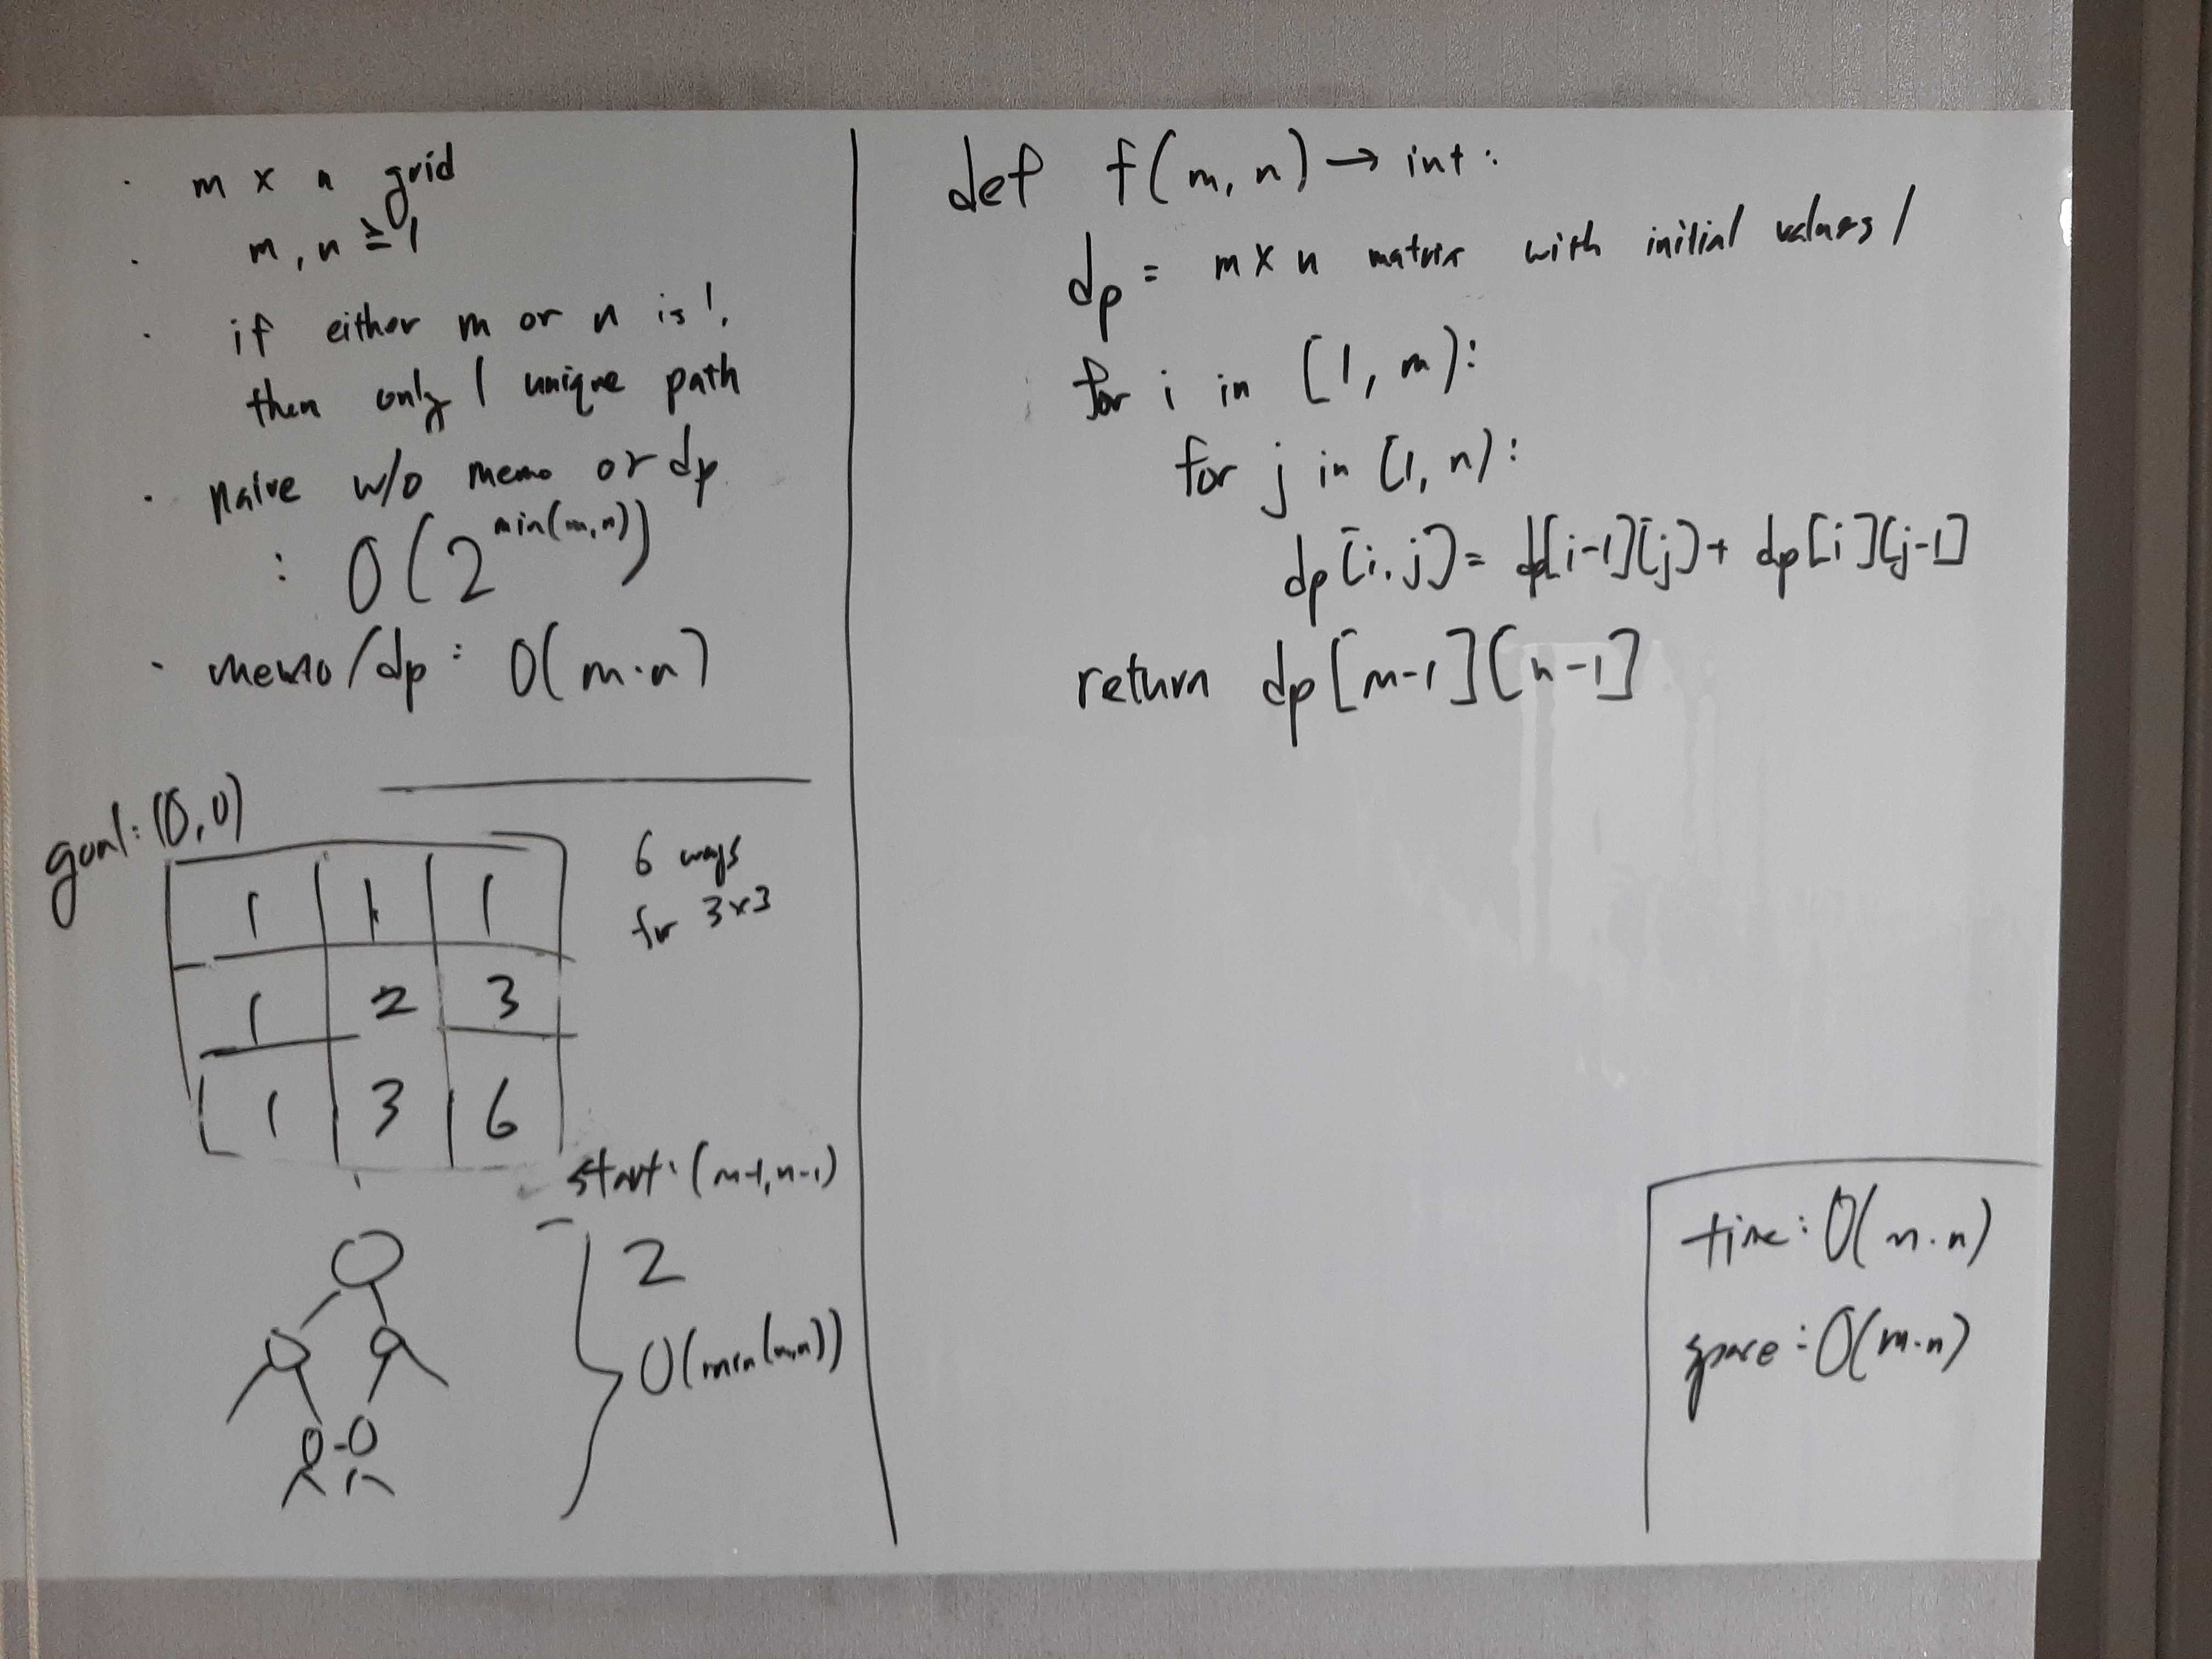 · m x n grid
· m, n ≥ 1
· if either m or n is 1,
then only 1 unique path
· naive w/o memo or dp
: O(2^min(m,n))
· memo/dp : O(m·n)
goal: (0,0)
1 1 1
1 2 3
1 3 6
6 ways
for 3x3
start: (m-1, n-1)
2
O(min(m,n))
def f(m, n) → int :
dp = m x n matrix with initial values 1
for i in [1, m):
for j in [1, n):
dp[i, j] = dp[i-1][j] + dp[i][j-1]
return dp[m-1][n-1]
time: O(m·n)
space: O(m·n)